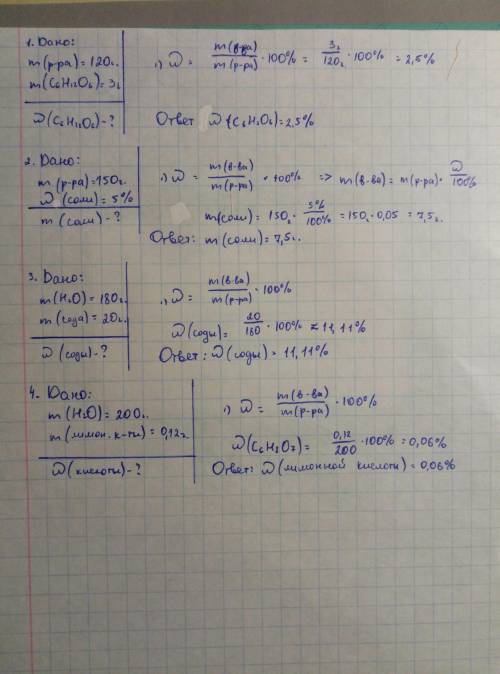 1. Дано:
m(р-ра)=120г.
m(C6H12O6)=3г
ω(C6H12O6)-?
1) ω = m(в-ва)/m(р-ра) · 100% = 3г/120г · 100% = 2,5%
Ответ ω(C6H12O6)=2,5%
2. Дано:
m(р-ра)=150г.
ω(соли)=5%
m(соли)-?
1) ω = m(в-ва)/m(р-ра) · 100% => m(в-ва) = m(р-ра) · ω/100%
m(соли) = 150г · 5%/100% = 150г · 0,05 = 7,5г.
Ответ: m(соли)=7,5г.
3. Дано:
m(H2O)=180г.
m(сода)=20г.
ω(соды)-?
1) ω = m(в-ва)/m(р-ра) · 100%
ω(соды)= 20/180 · 100% ≈ 11,11%
Ответ: ω(соды) = 11,11%
4. Дано:
m(H2O)=200г.
m(лимон. к-ты)=0,12г.
ω(кислоты)-?
1) ω = m(в-ва)/m(р-ра) · 100%
ω(C6H8O7)= 0,12/200 · 100% = 0,06%
Ответ: ω(лимонной кислоты)=0,06%